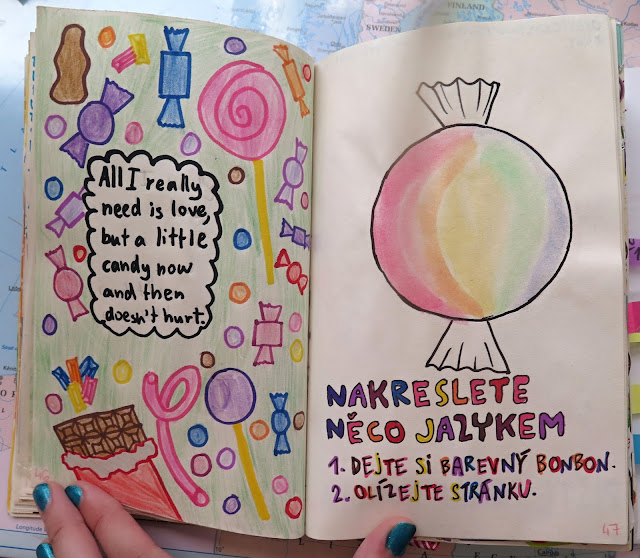 SWEDEN
FINLAND
All I really
need is love,
but a little
candy now
and then
doesn't hurt.
NAKRESLETE
NĚCO JAZYKEM
1. DEJTE SI BAREVNÝ BONBON.
2. OLÍZEJTE STRÁNKU.
46
47
Longitude